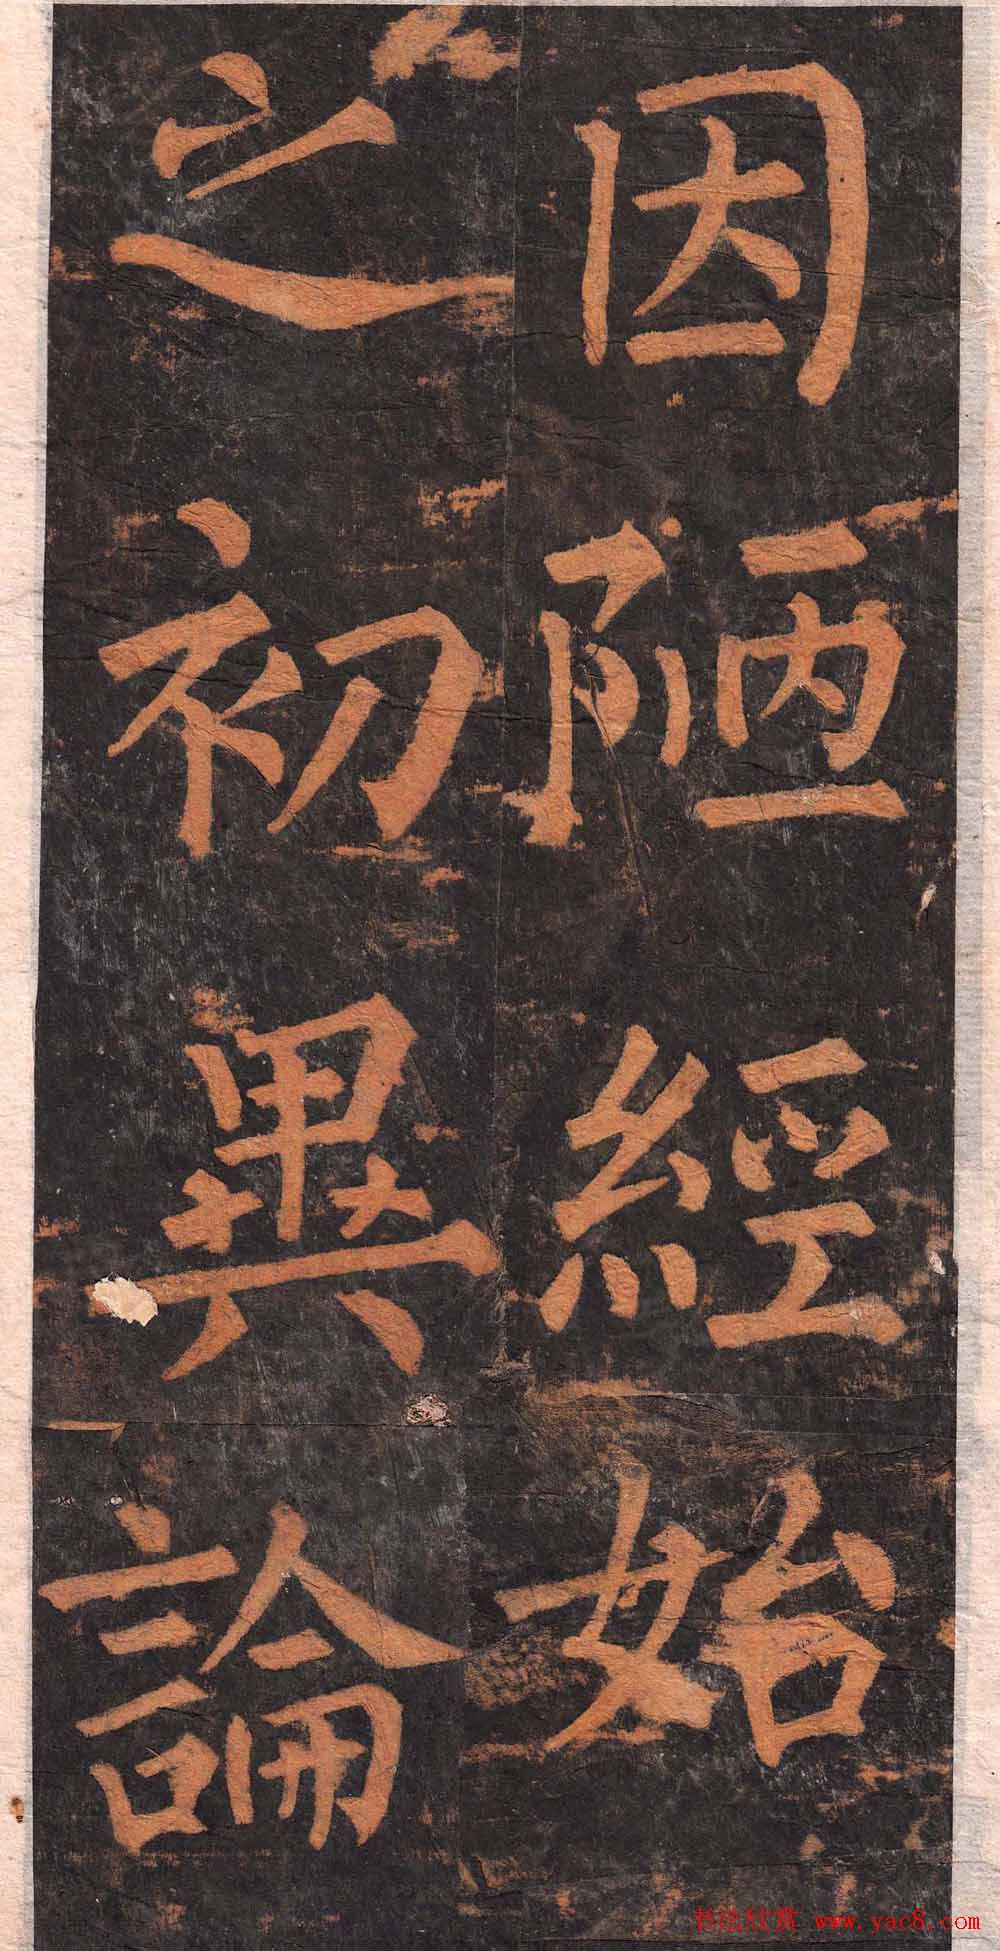 因陋經始
之初異論
书法欣赏 www.yac8.com